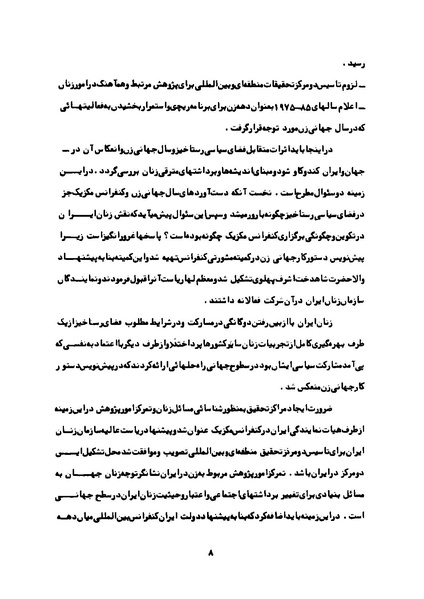 رسید .
ــ لزوم تاسیس دو مرکز تحقیقات منطقه‌ای و بین‌المللی برای پژوهش مرتبط و هم‌آهنگ در امور زنان
ــ اعلام سالهای ۸۵ــ۱۹۷۵ بعنوان دهه زن برای برنامه‌ریزی و استمرار بخشیدن به فعالیتهـائی
که در سال جهانی زن مورد توجه قرار گرفت .
در اینجا باید اثرات متقابل فضای سیاسی رستاخیز و سال جهانی زن و انعکاس آن در ــ
جهان و ایران کندوکاو شود و مبنای اندیشه‌ها و برداشتهای مترقی زنان بررسی گردد . در ایـــن
زمینه دو سئوال مطرح است . نخست آنکه دست‌آوردهای سال جهانی زن و کنفرانس مکزیک جز
در فضای سیاسی رستاخیز چگونه بارور میشد و سپس این سئوال پیش میآید که نقش زنان ایـــرا ن
در تکوین و چگونگی برگزاری کنفرانس مکزیک چگونه بوده است ؟ پاسخها غرورانگیز است زیـــرا
پیش‌نویس دستور کار جهانی زن در کمیته مشورتی کنفرانس تهیه شد و این کمیته بنا به پیشنهـــاد
والاحضرت شاهدخت اشرف پهلوی تشکیل شد و معظم لها ریاست آنرا قبول فرمودند و نماینـدگان
سازمان زنان ایران در آن شرکت فعالانه داشتند .
زنان ایران با از بین رفتن دوگانگی در مشارکت و در شرایط مطلوب فضای رستاخیز از یک
طرف بهره‌گیری کامل از تجربیات زنان سایر کشورها پرداختند و از طرف دیگر با اعتماد به نفسی که
بی‌آمد مشارکت سیاسی ایشان بود در سطح جهانی راه‌حلهائی ارائه کردند که در پیش‌نویس دستو ر
کار جهانی زن منعکس شد .
ضرورت ایجاد مراکز تحقیق بمنظور شناسائی مسائل زنان و تمرکز امور پژوهش در این زمینه
از طرف هیات نمایندگی ایران در کنفرانس مکزیک عنوان شد و پیشنهاد ریاست عالیه سازمان زنـان
ایران برای تاسیس دو مرکز تحقیق منطقه‌ای و بین‌المللی تصویب و موافقت شد محل تشکیل ایـــن
دو مرکز در ایران باشد . تمرکز امور پژوهش مربوط به زن در ایران نشانگر توجه زنان جهـــان به
مسائل بنیادی برای تغییر برداشتهای اجتماعی و اعتبار و حیثیت زنان ایران در سطح جهانـــی
است . در این زمینه باید اضافه کرد که بنا به پیشنهاد دولت ایران کنفرانس بین‌المللی میان دهـه
۸